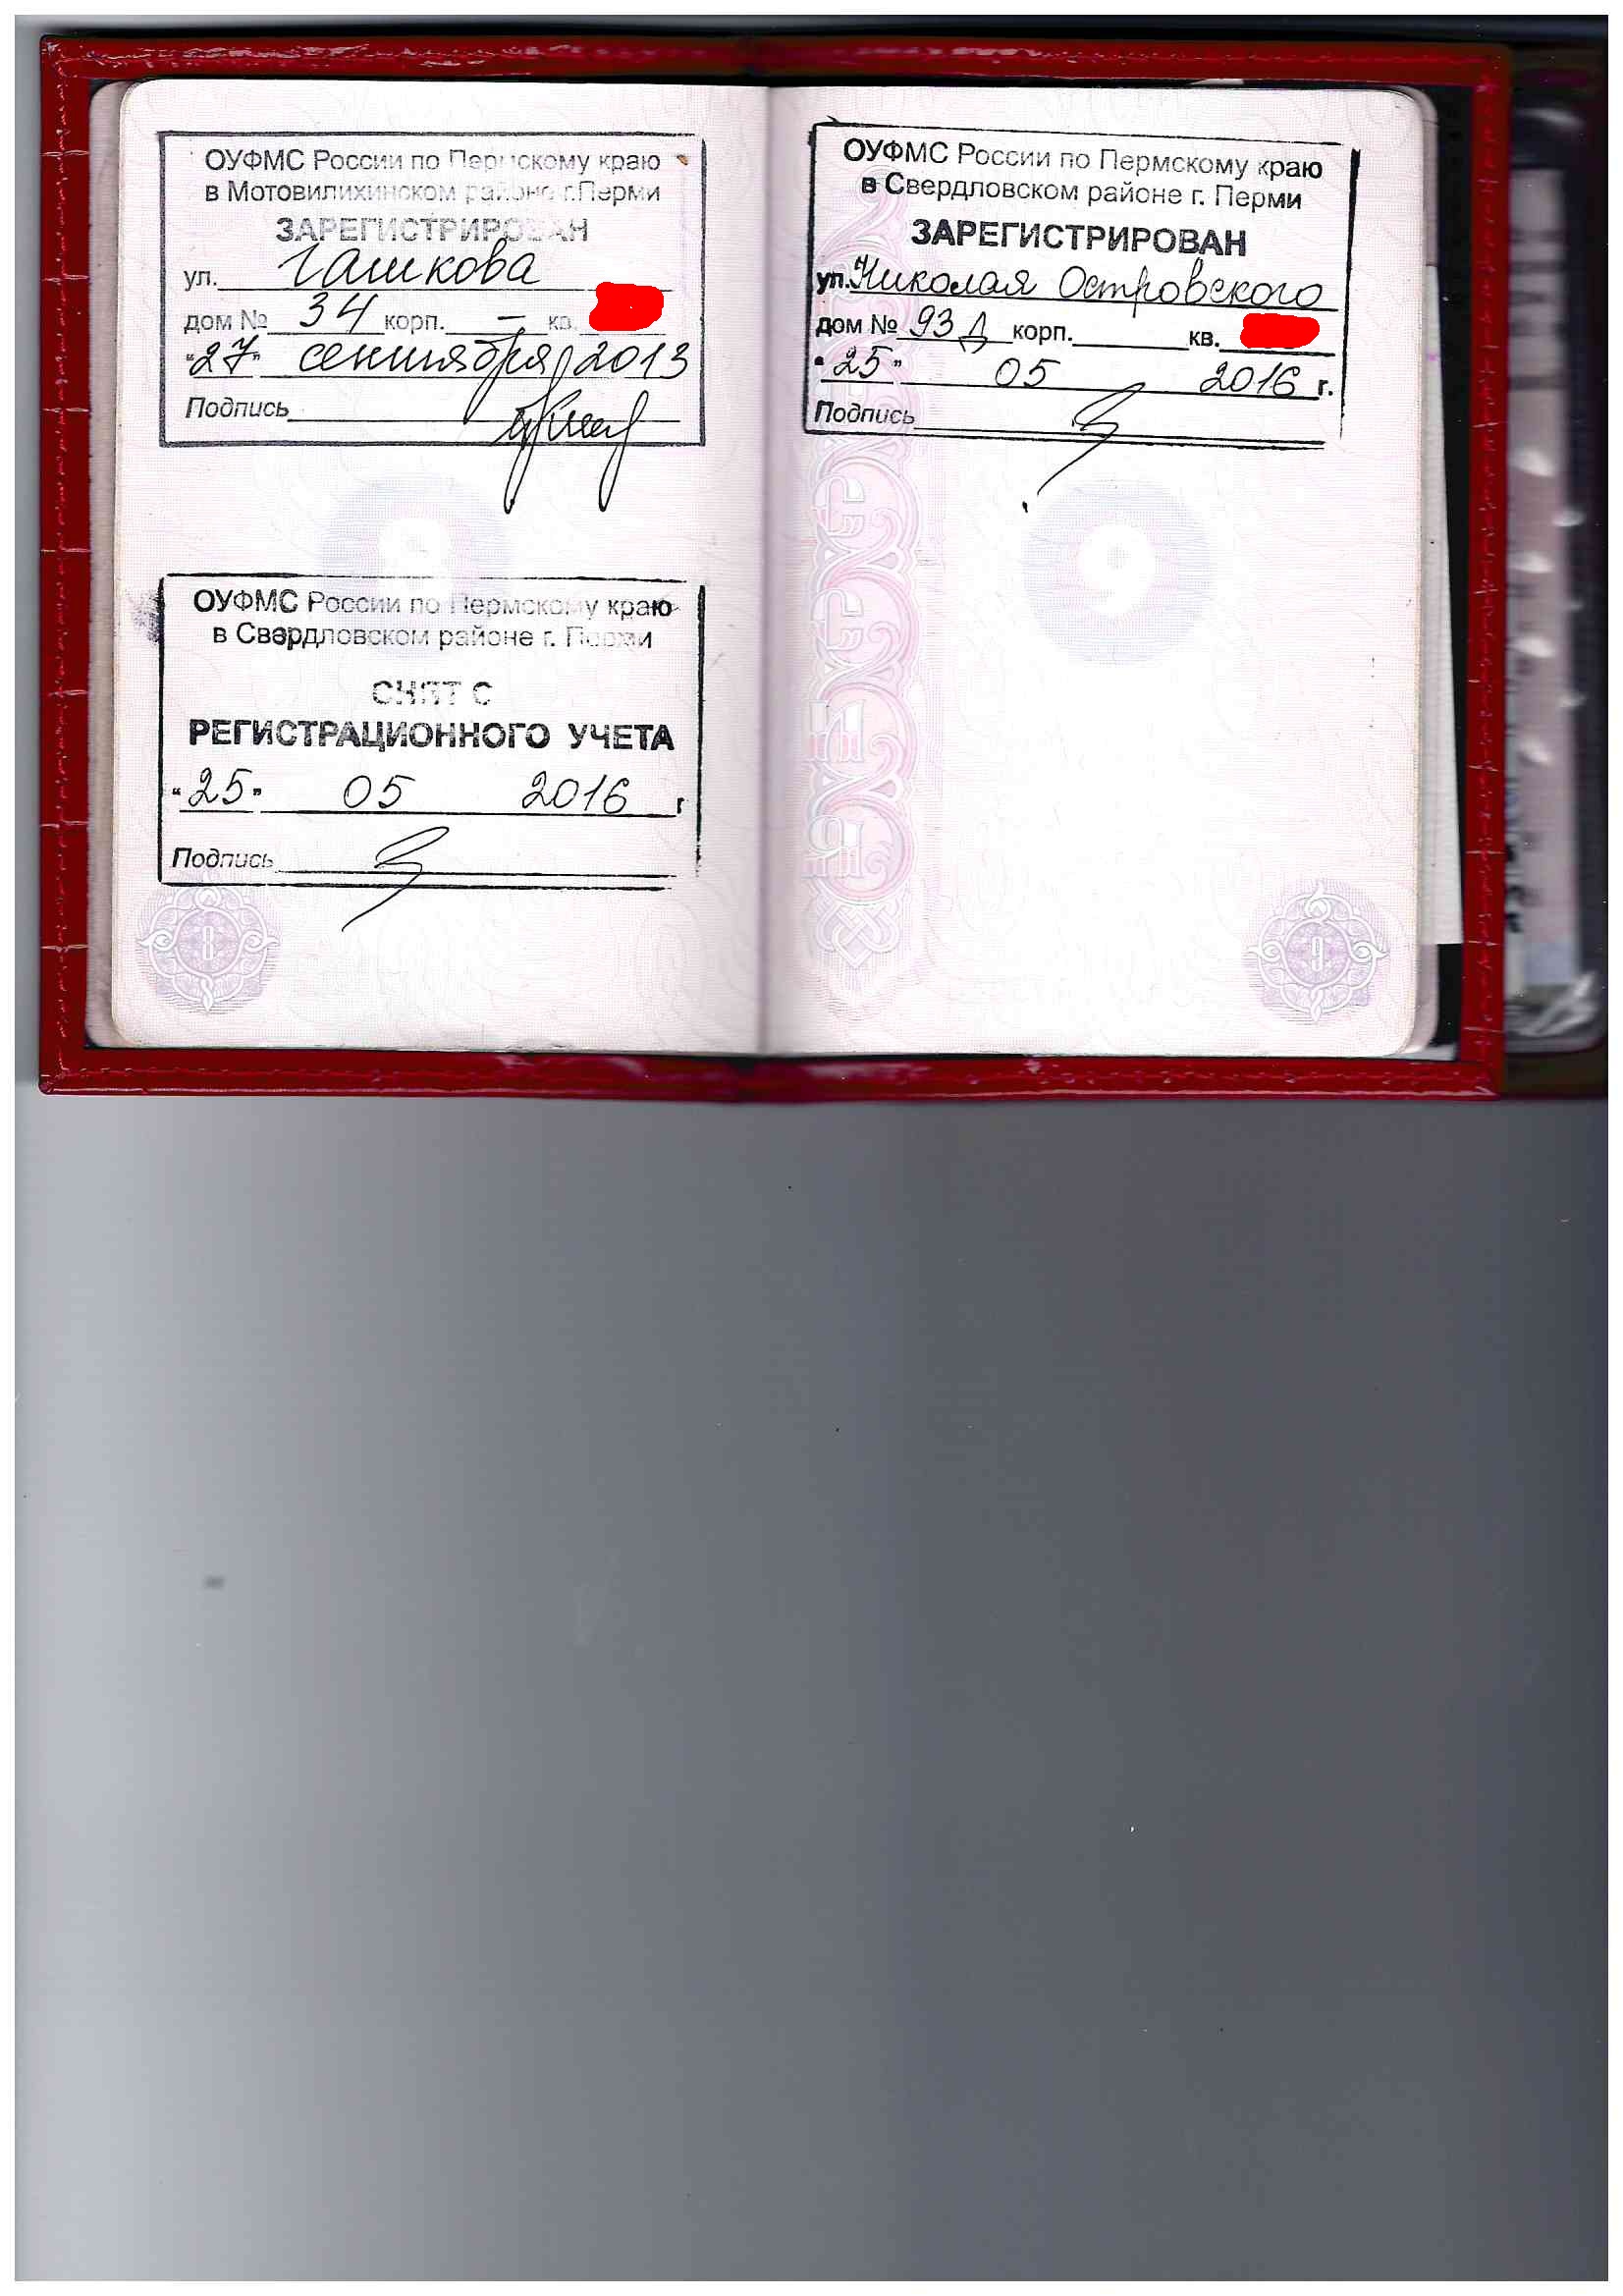 ОУФМС России по Пермскому краю
в Мотовилихинском районе г.Перми
ЗАРЕГИСТРИРОВАН
ул. Гашкова
дом № 34 корп. – кв.
"27" сентября 2013
Подпись
ОУФМС России по Пермскому краю
в Свердловском районе г. Перми
СНЯТ С
РЕГИСТРАЦИОННОГО УЧЕТА
"25" 05 2016 г
Подпись
8
ОУФМС России по Пермскому краю
в Свердловском районе г. Перми
ЗАРЕГИСТРИРОВАН
ул. Николая Островского
дом № 93 Д корп. кв.
"25" 05 2016 г.
Подпись
9
9